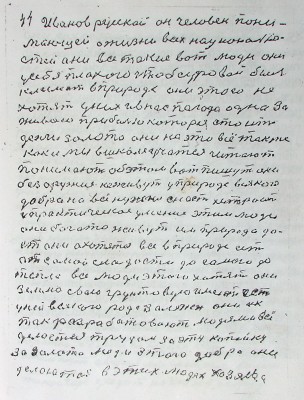 44 Иванов русской он человек пони-
мающей жизни всех национал но-
стей ани все такие вот люди они
у себя плахого чтоб суровой был
климат в природе они этого не
хотят у них и нас погода одна За
живого прибыло которая стоит
денги золото они на это всё такие
как и мы в школе учатся читают
понимают об этом вот пишут они
без оружия не живут у природе всякого
добра на всё нужна снасть хитрост
и практическое умение этим люди
они богато живут им природа да-
ст они охотято все в природе ит
ат самой сладости до самого до
тепла все люди этого хотят они
землю свою грунтовую имеют ест
у ней всякого рода залежи они их
так разрабатовают людями всё
делается трудом за эту копейку
За золота люди этого добра они
делаются в этих людях хозяева